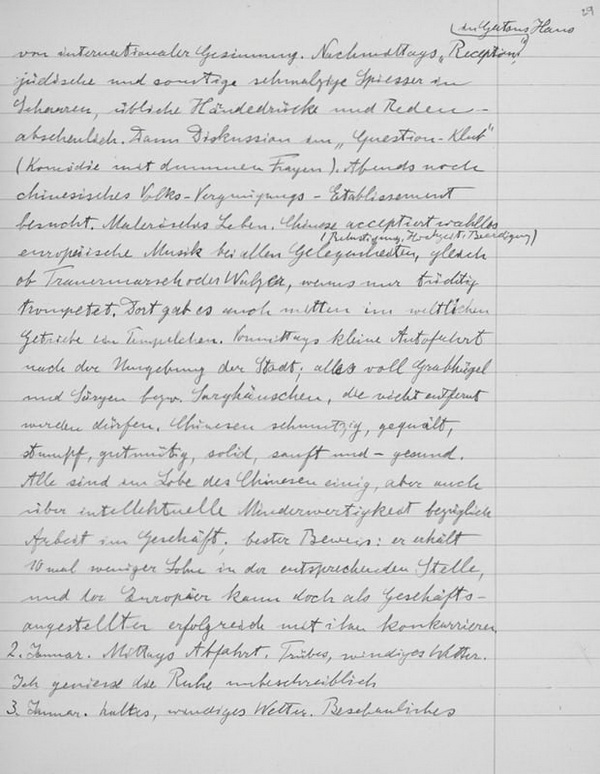 29
(in Gattons Haus)
von internationaler Gesinnung. Nachmittags „Reception“,
jüdische und sonstige schmalzige Spiesser in
Scharen, übliche Händedrücke und Reden –
abscheulich. Dann Diskussion im „Question-Klub“
(Komödie mit dummen Fragen). Abends noch
chinesisches Volks-Vergnügungs-Etablissement
besucht. Malerisches Leben. Chinese acceptiert wahllos
(Belustigung, Hochzeit, Beerdigung)
europäische Musik bei allen Gelegenheiten, gleich
ob Trauermarsch oder Walzer, wenns nur tüchtig
trompetet. Dort gab es auch mitten im weltlichen
Getriebe ein Tempelchen. Vormittags kleine Autofahrt
nach der Umgebung der Stadt; alles voll Grabhügel
und Särgen bezw. Sarghäuschen, die nicht entfernt
werden dürfen. Chinesen schmutzig, gequält,
stumpf, gutmütig, solid, sanft und – gesund.
Alle sind im Lobe des Chinesen einig, aber auch
über intellektuelle Minderwertigkeit bezüglich
Arbeit im Geschäft; bester Beweis: er erhält
10 mal weniger Lohn in der entsprechenden Stelle,
und der Europäer kann doch als Geschäfts-
angestellter erfolgreich mit ihm konkurrieren
2. Januar. Mittags Abfahrt. Trübes, windiges Wetter.
Ich geniesse die Ruhe unbeschreiblich
3. Januar. kaltes, windiges Wetter. Beschauliches